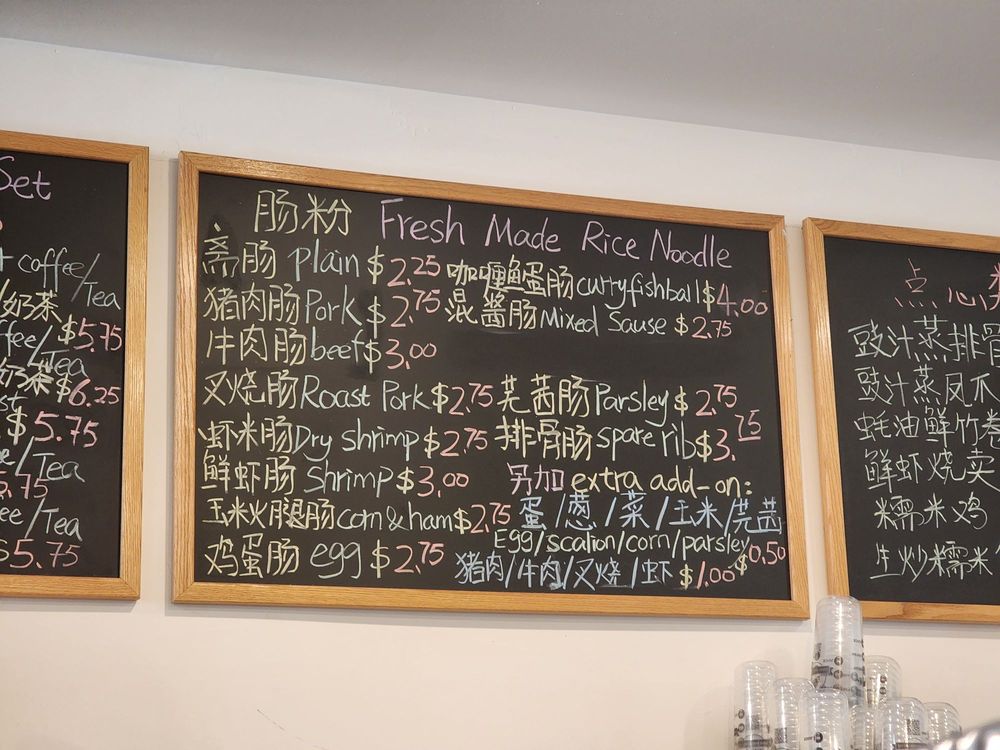 Set
coffee/Tea
/奶茶
$5.75
/Tea
$6.25
$5.75
/Tea
5.75
/Tea
$5.75
肠粉 Fresh Made Rice Noodle
斋肠 plain $2.25 咖喱鱼蛋肠 curryfishball $4.00
猪肉肠 Pork $2.75 混酱肠 Mixed Sause $2.75
牛肉肠 beef $3.00
叉烧肠 Roast Pork $2.75 芫茜肠 Parsley $2.75
虾米肠 Dry shrimp $2.75 排骨肠 spare rib $3.75
鲜虾肠 Shrimp $3.00 另加 extra add-on:
玉米火腿肠 corn & ham $2.75 蛋/葱/菜/玉米/芫茜
Egg/scalion/corn/parsley $0.50
鸡蛋肠 egg $2.75 猪肉/牛肉/叉烧/虾 $1.00
点心
豉汁蒸排骨
豉汁蒸凤爪
蚝油鲜竹卷
鲜虾烧卖
糯米鸡
生炒糯米